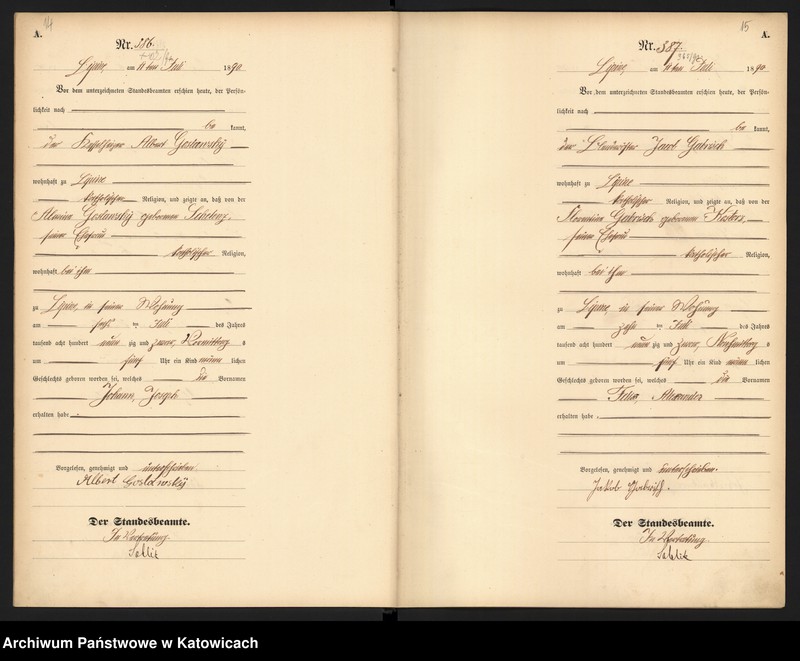 14
A.
Nr. 586.
Lipine, am 11 ten Juli 1890.
Vor dem unterzeichneten Standesbeamten erschien heute, der Persön-
lichkeit nach
be kannt,
der Albert Goslawsky
wohnhaft zu Lipine
katholischer Religion, und zeigte an, daß von der
Goslawsky geborenen
seiner Ehefrau
katholischer Religion,
wohnhaft bei ihm
zu Lipine, in seiner Wohnung
am ten Juli des Jahres
tausend acht hundert neun zig und zwar, Vormittags
um fünf Uhr ein Kind männ lichen
Geschlechts geboren worden sei, welches die Vornamen
Johann, Joseph
erhalten habe.
Vorgelesen, genehmigt und unterschrieben
Albert Goslawsky
Der Standesbeamte.
In Vertretung
Sablik
15
A.
Nr. 587.
Lipine, am 11 ten Juli 1890.
Vor dem unterzeichneten Standesbeamten erschien heute, der Persön-
lichkeit nach
be kannt,
der Jacob Gabrisch
wohnhaft zu Lipine
katholischer Religion, und zeigte an, daß von der
Florentine Gabrisch geborenen
seiner Ehefrau
katholischer Religion,
wohnhaft bei ihm
zu Lipine, in seiner Wohnung
am zehn ten Juli des Jahres
tausend acht hundert neun zig und zwar, Nachmittags
um fünf Uhr ein Kind männ lichen
Geschlechts geboren worden sei, welches die Vornamen
Alexander
erhalten habe.
Vorgelesen, genehmigt und unterschrieben.
Jakob Gabrisch.
Der Standesbeamte.
In Vertretung
Sablik
Archiwum Państwowe w Katowicach